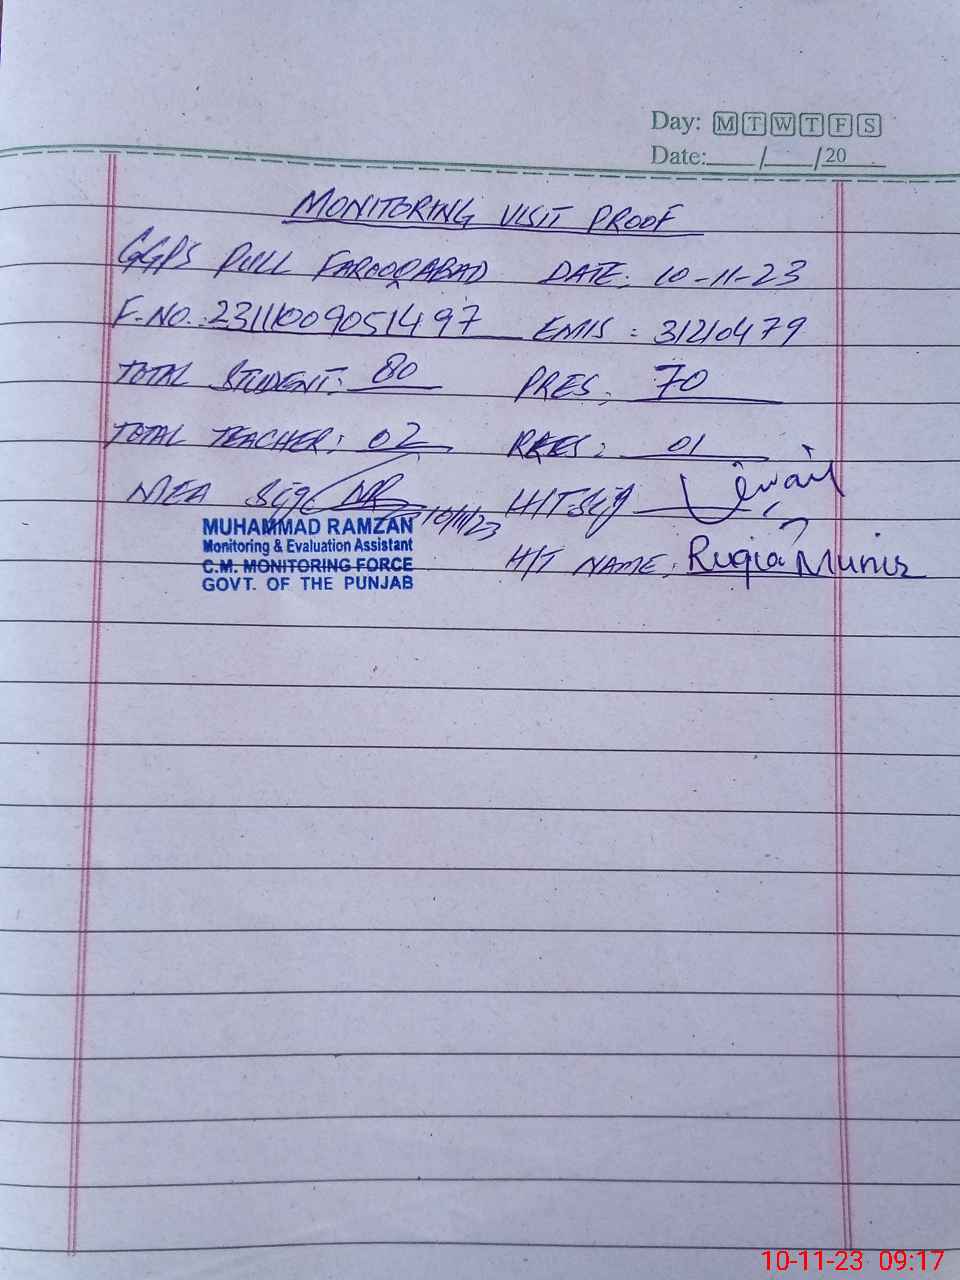 Day: M T W T F S
Date:____/____/20____
MONITORING VISIT PROOF
GGPS PULL FAROOQABAD DATE: 10-11-23
F.NO.: 23111009051497 EMIS: 31210479
TOTAL STUDENT: 80 PRES: 70
TOTAL TEACHER: 02 PRES: 01
MEA Sig 10/11/23 H/T Sig
MUHAMMAD RAMZAN
Monitoring & Evaluation Assistant
C.M. MONITORING FORCE
GOVT. OF THE PUNJAB
H/T NAME: Ruqia Munir
10-11-23 09:17